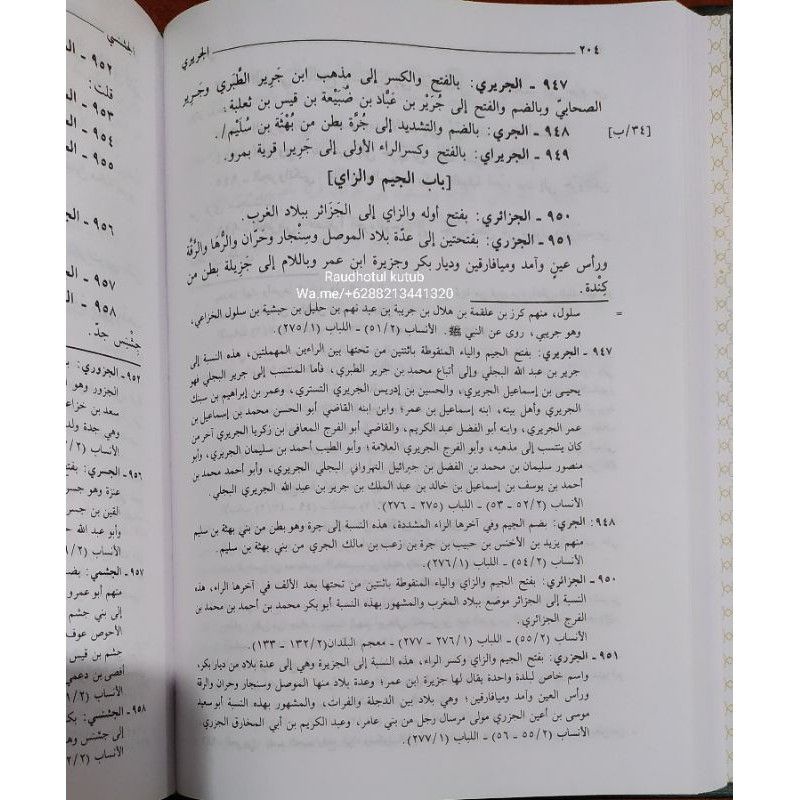 ٢٠٤ الجريري
٩٤٧ - الجريري: بالفتح والكسر إلى مذهب ابن جَرير الطَّبَري وجَرير
الصحابيّ وبالضم والفتح إلى جُرَيْر بن عَبَّاد بن ضُبَيْعة بن قيس بن ثعلبة.
٩٤٨ - الجري: بالضم والتشديد إلى جُرَّة بطن من بُهْثة بن سُلَيْم/. [٣٤/ب]
٩٤٩ - الجريراي: بالفتح وكسرالراء الأولى إلى جَريرا قرية بمرو.
[باب الجيم والزاي]
٩٥٠ - الجزائري: بفتح أوله والزاي إلى الجَزَائر ببلاد الغرب.
٩٥١ - الجزري: بفتحتين إلى عدّة بلاد الموصل وسِنْجار وحَرّان والرُّها والرَّقّة
ورأس عينٍ وآمد وميافارقين وديار بكر وجزيرة ابن عمر وباللام إلى جَزيلة بطن من
كِنْدة.
Raudhotul kutub
Wa.me/+6288213441320
= سلول، منهم كرز بن علقمة بن هلال بن جريبة بن عبد نهم بن حليل بن حبشية بن سلول الخزاعي،
وهو جريبي، روى عن النبي ﷺ. الأنساب (٥١/٢) - اللباب (٢٧٥/١).
٩٤٧ - الجريري: بفتح الجيم والياء المنقوطة باثنتين من تحتها بين الراءين المهملتين، هذه النسبة إلى
جرير بن عبد الله البجلي وإلى أتباع محمد بن جرير الطبري، فأما المنتسب إلى جرير البجلي فهو
يحيى بن إسماعيل الجريري، والحسين بن إدريس الجريري التستري، وعمر بن إبراهيم بن سبنك
الجريري وأهل بيته، ابنه إسماعيل بن عمر؛ وابن ابنه القاضي أبو الحسن محمد بن إسماعيل بن
عمر الجريري، وابنه أبو الفضل عبد الكريم، والقاضي أبو الفرج المعافى بن زكريا الجريري آخر من
كان ينتسب إلى مذهبه، وأبو الفرج الجريري العلامة؛ وأبو الطيب أحمد بن سليمان الجريري، وأبو
منصور سليمان بن محمد بن الفضل بن جبرائيل النهرواني البجلي الجريري، وأبو أحمد محمد بن
أحمد بن يوسف بن إسماعيل بن خالد بن عبد الملك بن جرير بن عبد الله الجريري البجلي.
الأنساب (٥٢/٢ - ٥٣) - اللباب (٢٧٥ - ٢٧٦).
٩٤٨ - الجري: بضم الجيم وفي آخرها الراء المشددة، هذه النسبة إلى جرة وهو بطن من بني بهثة بن سليم
منهم يزيد بن الأخنس بن حبيب بن جرة بن زعب بن مالك الجري من بني بهثة بن سليم.
الأنساب (٥٤/٢) - اللباب (٢٧٦/١).
٩٥٠ - الجزائري: بفتح الجيم والزاي والياء المنقوطة باثنتين من تحتها بعد الألف في آخرها الراء، هذه
النسبة إلى الجزائر موضع ببلاد المغرب والمشهور بهذه النسبة أبو بكر محمد بن أحمد بن محمد بن
الفرج الجزائري.
الأنساب (٥٥/٢) - اللباب (٢٧٦/١ - ٢٧٧) - معجم البلدان (١٣٢/٢ - ١٣٣).
٩٥١ - الجزري: بفتح الجيم والزاي وكسر الراء، هذه النسبة إلى الجزيرة وهي إلى عدة بلاد من ديار بكر،
واسم خاص لبلدة واحدة يقال لها جزيرة ابن عمر؛ وعدة بلاد منها الموصل وسنجار وحران والرقة
ورأس العين وآمد وميافارقين؛ وهي بلاد بين الدجلة والفرات، والمشهور بهذه النسبة أبو سعيد
موسى بن أعين الجزري مولى مرسال رجل من بني عامر، وعبد الكريم بن أبي المخارق الجزري.
الأنساب (٥٥/٢ - ٥٦) - اللباب (٢٧٧/١).
الجشمي
٩٥٢ - الج
قلت:
٩٥٣ - الج
٩٥٤ - الج
٩٥٥ - الج
٩٥٦ - الج
٩٥٧ - الج
٩٥٨ - الج
جِشْنِس جدّ.
٩٥٢ - الجزوري: بفتح
الجزور وهو
سعد بن خزاعة
وهي جدة ولد
٩٥٦ - الجسري: بفتح
عنزة وهو جسر
القين بن جسر
وأبو عبد الله
الأنساب (٢/
٩٥٧ - الجشمي: بضم
منهم أبو عمرو
إلى بني جشم
الأحوص عوف
جشم بن قيس
أفصى بن دعمي
الأنساب (٢/
٩٥٨ - الجشنسي: بكسر
إلى جشنس وهو
الأنساب (٢/